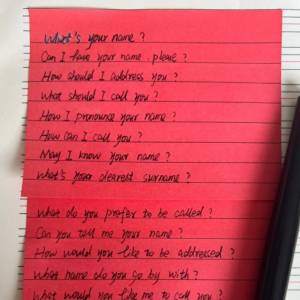 What's your name ?
Can I have your name please ?
How should I address you ?
What should I call you ?
How I pronounce your name ?
How can I call you ?
May I know your name ?
What's your dearest surname ?
What do you prefer to be called ?
Can you tell me your name ?
How would you like to be addressed ?
What name do you go by with ?
What would you like me to call you ?